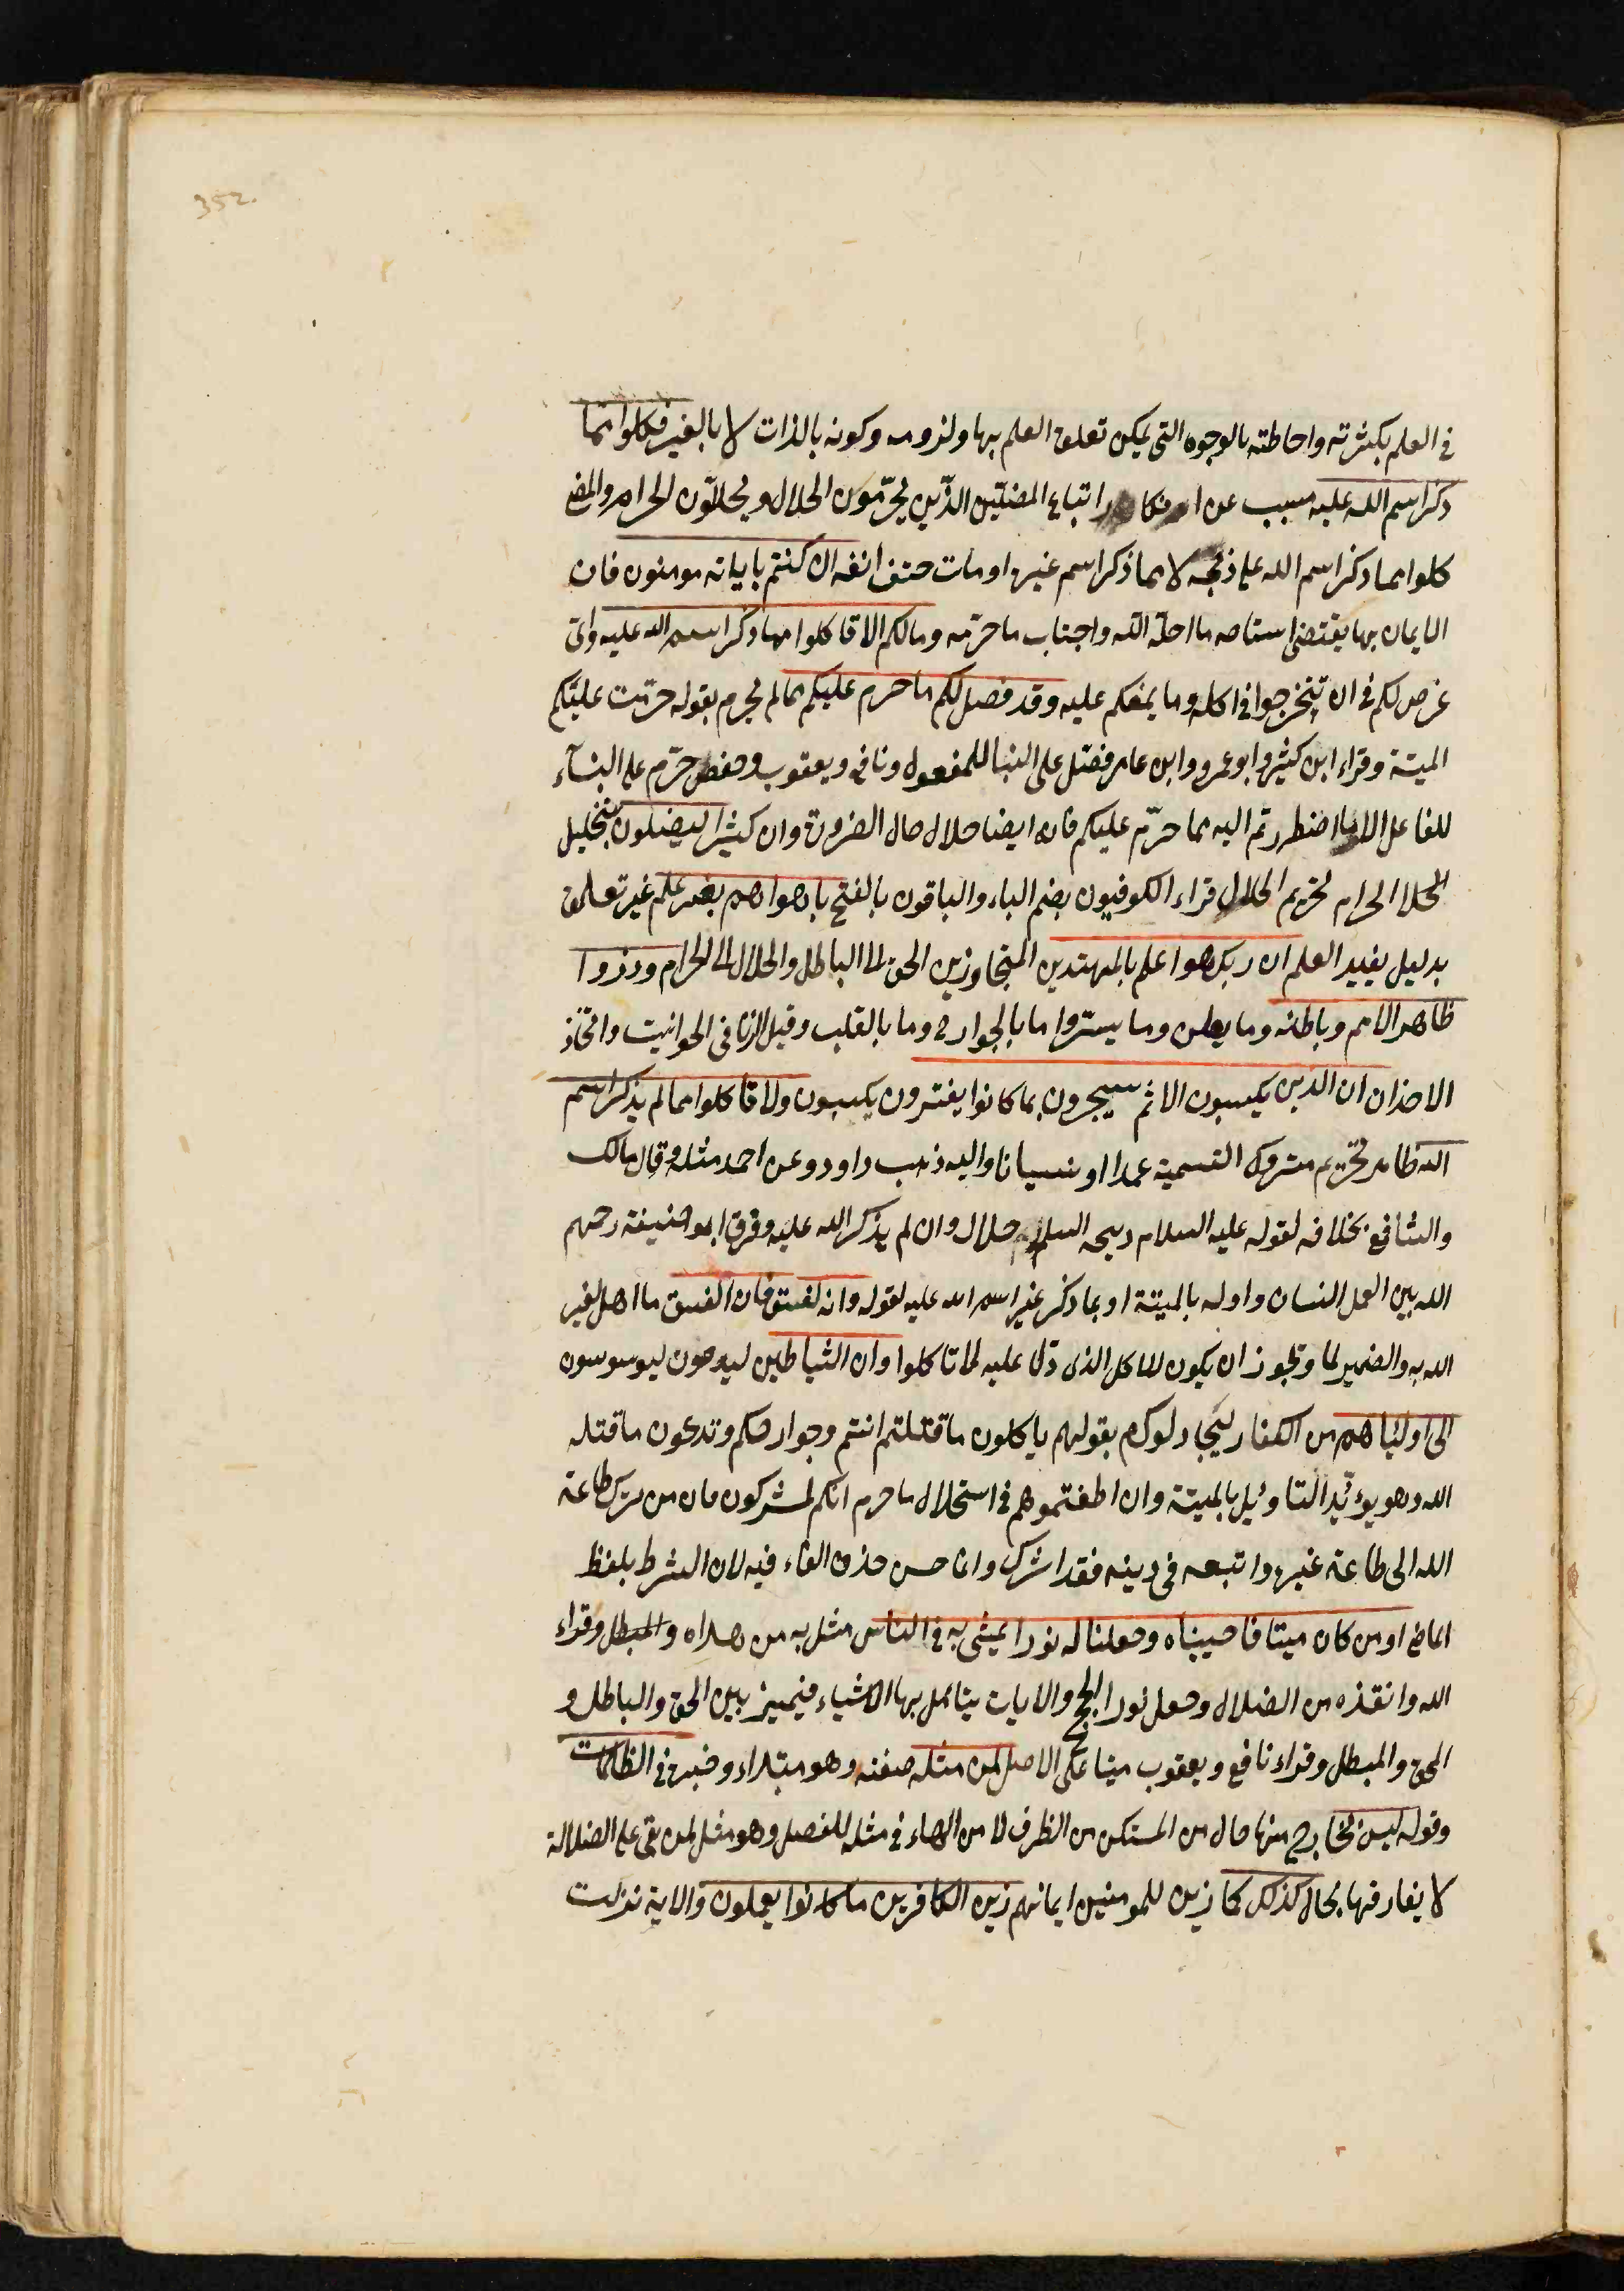 352.
في العلم بكثرته واحاطته بالوجوه التي يمكن تعلق العلم بها ولزومه وكونه بالذات لا بالغير فكلوا مما
ذكر اسم الله عليه مسبب عن انكار اتباع المضلين الذين يحرّمون الحلال ويحللّون الحرام والمعنى
كلوا مما ذكر اسم الله على ذبحه لا مما ذكر اسم غيره او مات حتف انفه ان كنتم باياته مومنون فان
الايمان بها يقتضى استباحه ما احلّه الله واجتناب ما حرّمه ومالكم الا تاكلوا مما ذكر اسم الله عليه واىّ
غرض لكم في ان تتخرجوا في اكله وما يمنعكم عليه وقد فصل لكم ما حرم عليكم مما لم يحرم بقوله حرّمت عليكم
الميتة وقراء ابن كثير وابو عمرو وابن عامر فصّل على البنا للمفعول ونافع ويعقوب وحفص حرّم على البنآء
للفاعل الا ما اضطررتم اليه مما حرّم عليكم فانه ايضا حلال حال الضرورة وان كثيرا ليضلون بتحليل
الحرام تحريم الحلال قراء الكوفيون بضم الياء والباقون بالفتح باهواهم بغير علم غير تعلق
بدليل يفيد العلم ان ربك هو اعلم بالمهتدين المتجاوزين الحق الى الباطل والحلال الى الحرام وذروا
ظاهر الاثم وباطنه وما يعلن وما يستروا ما بالجوارح وما بالقلب وقيل الزنا في الحوانيت واتخاذ
الاخدان ان الذين يكسبون الاثم سيجزون بما كانوا يفترون يكسبون ولا تاكلوا مما لم يذكر اسم
الله ظاهر تحريم متروك التسمية عمدا او نسيانا واليه ذهب داود وعن احمد مثله وقال مالك
والشافعي بخلافه لقوله عليه السلام ذبيحه المسلم حلال وان لم يذكر الله عليه وفرق ابو حنيفة رحمهم
الله بين العمد النسان واوله بالميتة او بما ذكر غير اسم الله عليه لقوله وانه لفسق فان الفسق ما اهل لغير
الله به والضمير لما ويجوز ان يكون للاكل الذى دل عليه لا تاكلوا وان الشياطين ليوحون ليوسوسون
الى اوليائهم من الكفار ليجادلوكم بقولهم ياكلون ما قتلتم انتم وجوارحكم وتدعون ما قتله
الله وهو يويّد التاويل بالميتة وان اطعتموهم في استحلال ما حرم انكم لمشركون فان من ترك طاعة
الله الى طاعة غيره واتبعه في دينه فقد اشرك وانما حسن حذف الفاء فيه لان الشرط بلفظ
الماضى اومن كان ميتا فاحييناه وجعلنا له نورا يمشي به في الناس مثل به من هداه والمبطل وقراء
الله وانقذه من الضلال وجعل نور الحجج والايات يتامل بها الاشياء فيميز بين الحق والباطل و
المحق والمبطل وقراء نافع ويعقوب ميتا على الاصل لمن مثله صفته وهو مبتداء وخبره في الظلمات
وقوله ليس بخارج منها حال من المستكن من الظرف لا من الهاء في مثله للفصل وهو مثل لمن بقي على الضلالة
لا يفارقها بحال كذلك كما زين للمومنين ايمانهم زين الكافرين ما كانوا يعملون والاية نزلت